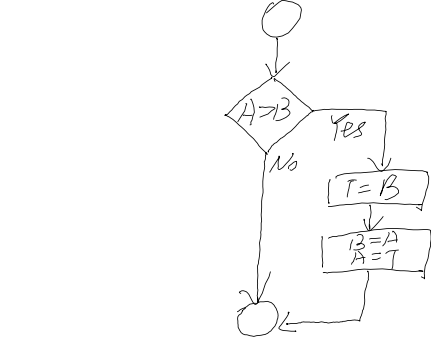 A>B
Yes
No
T = B
B=A
A=T